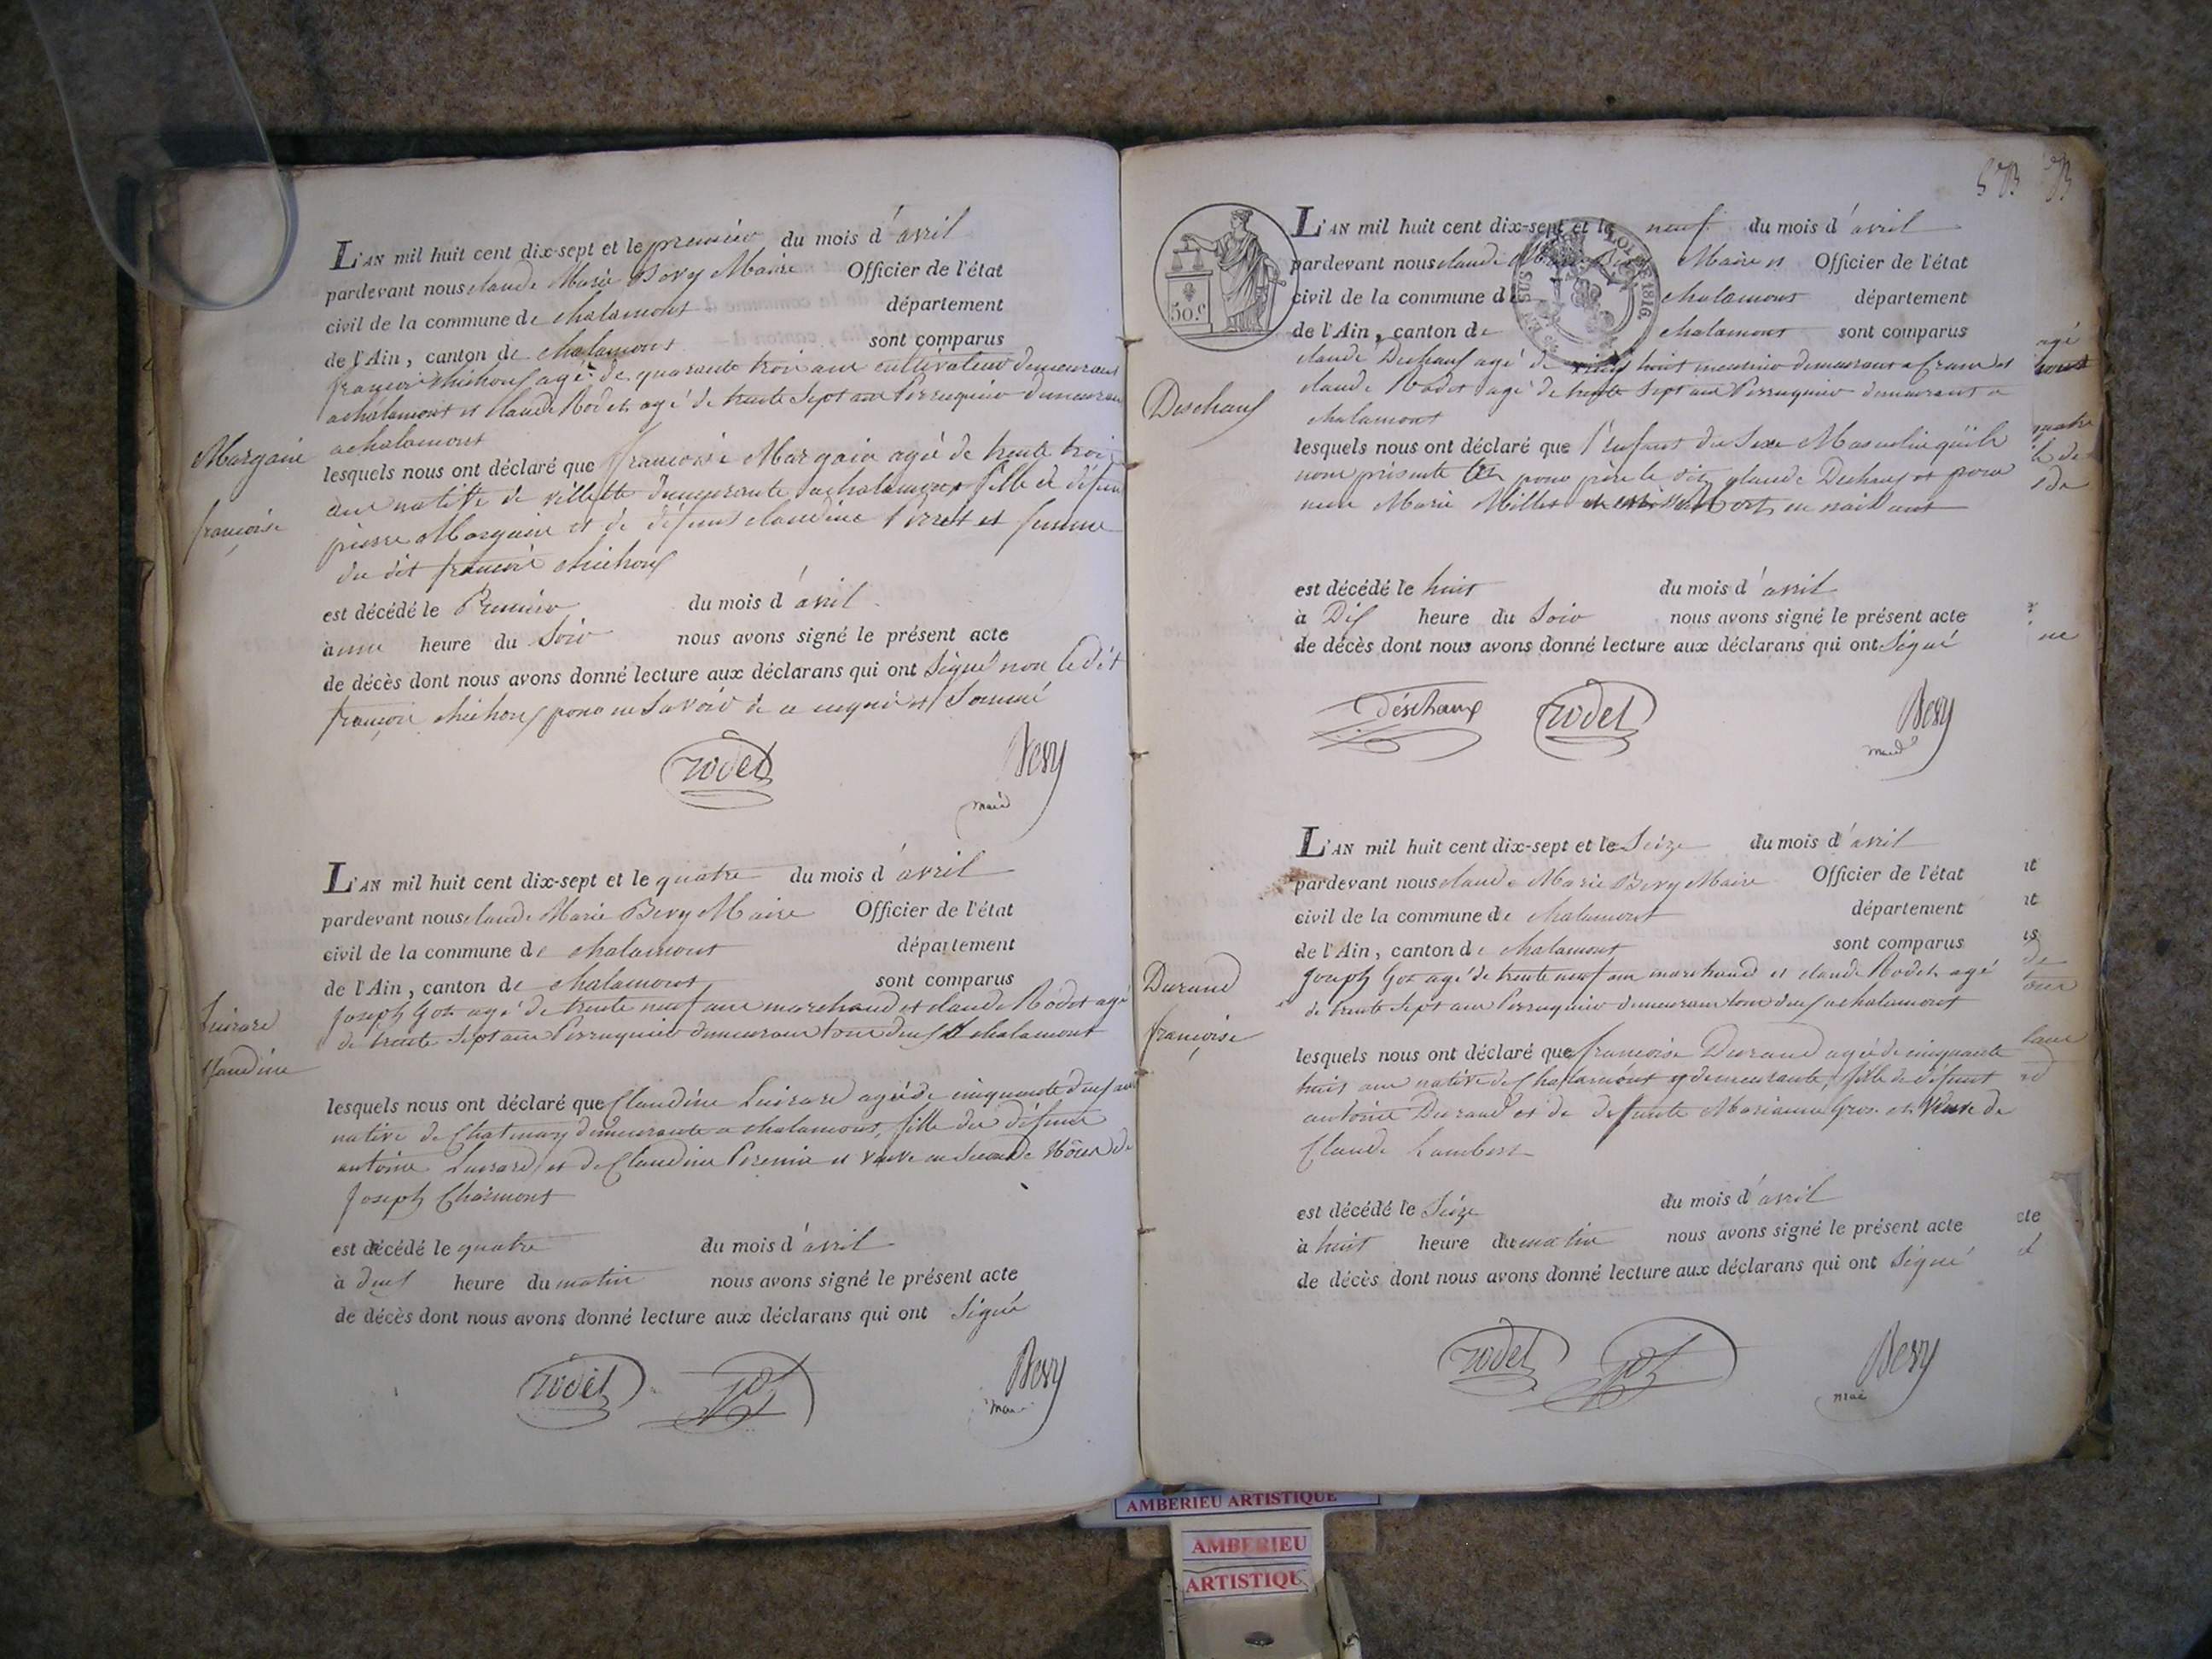 L'AN mil huit cent dix-sept et le premier du mois d'avril
pardevant nous claude Marie Bevy Maire Officier de l'état
civil de la commune de chalamont département
de l'Ain, canton de chalamont sont comparus
françois agé de quarante trois ans cultivateur demeurant
a chalamont et claude Rodet agé de trente Sept ans Perruquier demeurant
a chalamont
Margain
françoise
lesquels nous ont déclaré que françoise Margain agée de trente trois
ans native de villette demeurante a chalamont fille de défunt
pierre Margain et de défunte claudine et femme
du dit françois
est décédé le Premier du mois d'avril
à une heure du Soir nous avons signé le présent acte
de décès dont nous avons donné lecture aux déclarans qui ont Signé non le dit
françois pour ne Savoir de ce enquis et Sommé
rodet
Bevy
maire
L'AN mil huit cent dix-sept et le quatre du mois d'avril
pardevant nous claude Marie Bevy Maire Officier de l'état
civil de la commune de chalamont département
de l'Ain, canton de chalamont sont comparus
Joseph Goz agé de trente neuf ans marchand et claude Rodet agé
de trente Sept ans Perruquier demeurant tous deux a chalamont
Luirard
Claudine
lesquels nous ont déclaré que Claudine Luirard agée de cinquante deux ans
native de Chatenay demeurante a chalamont, fille de défunt
antoine Luirard et de Claudine et veuve en Seconde Nôces de
Joseph Charmont
est décédé le quatre du mois d'avril
à deux heure du matin nous avons signé le présent acte
de décès dont nous avons donné lecture aux déclarans qui ont Signé
rodet
Bevy
maire
50 c.
EN SUS
LOI 1816
L'AN mil huit cent dix-sept et le neuf du mois d'avril
pardevant nous claude Maire et Officier de l'état
civil de la commune de chalamont département
de l'Ain, canton de chalamont sont comparus
claude Deschaux agé de huit meunier demeurant a et
claude Rodet agé de trente Sept ans Perruquier demeurant a
chalamont
Deschaux
lesquels nous ont déclaré que l'enfant du Sexe Masculin qu'ils
nous présente pour père le dit claude Deschaux et pour
mere Marie Millet mort en naissant
est décédé le huit du mois d'avril
à Dix heure du Soir nous avons signé le présent acte
de décès dont nous avons donné lecture aux déclarans qui ont Signé
Déschaux rodet
Bevy
maire
L'AN mil huit cent dix-sept et le Seize du mois d'avril
pardevant nous claude Marie Bevy Maire Officier de l'état
civil de la commune de chalamont département
de l'Ain, canton de chalamont sont comparus
Joseph Goz agé de trente neuf ans marchand et claude Rodet agé
de trente Sept ans Perruquier demeurant tous deux a chalamont
Durand
françoise
lesquels nous ont déclaré que françoise Durand agée de cinquante
huit ans native de Chalamont y demeurante fille de défunt
antoine Durand et de défunte Marianne Gros et Veuve de
Claude Lambert
est décédé le Seize du mois d'avril
à huit heure du matin nous avons signé le présent acte
de décès dont nous avons donné lecture aux déclarans qui ont Signé
rodet
Bevy
AMBERIEU ARTISTIQUE
AMBERIEU
ARTISTIQU